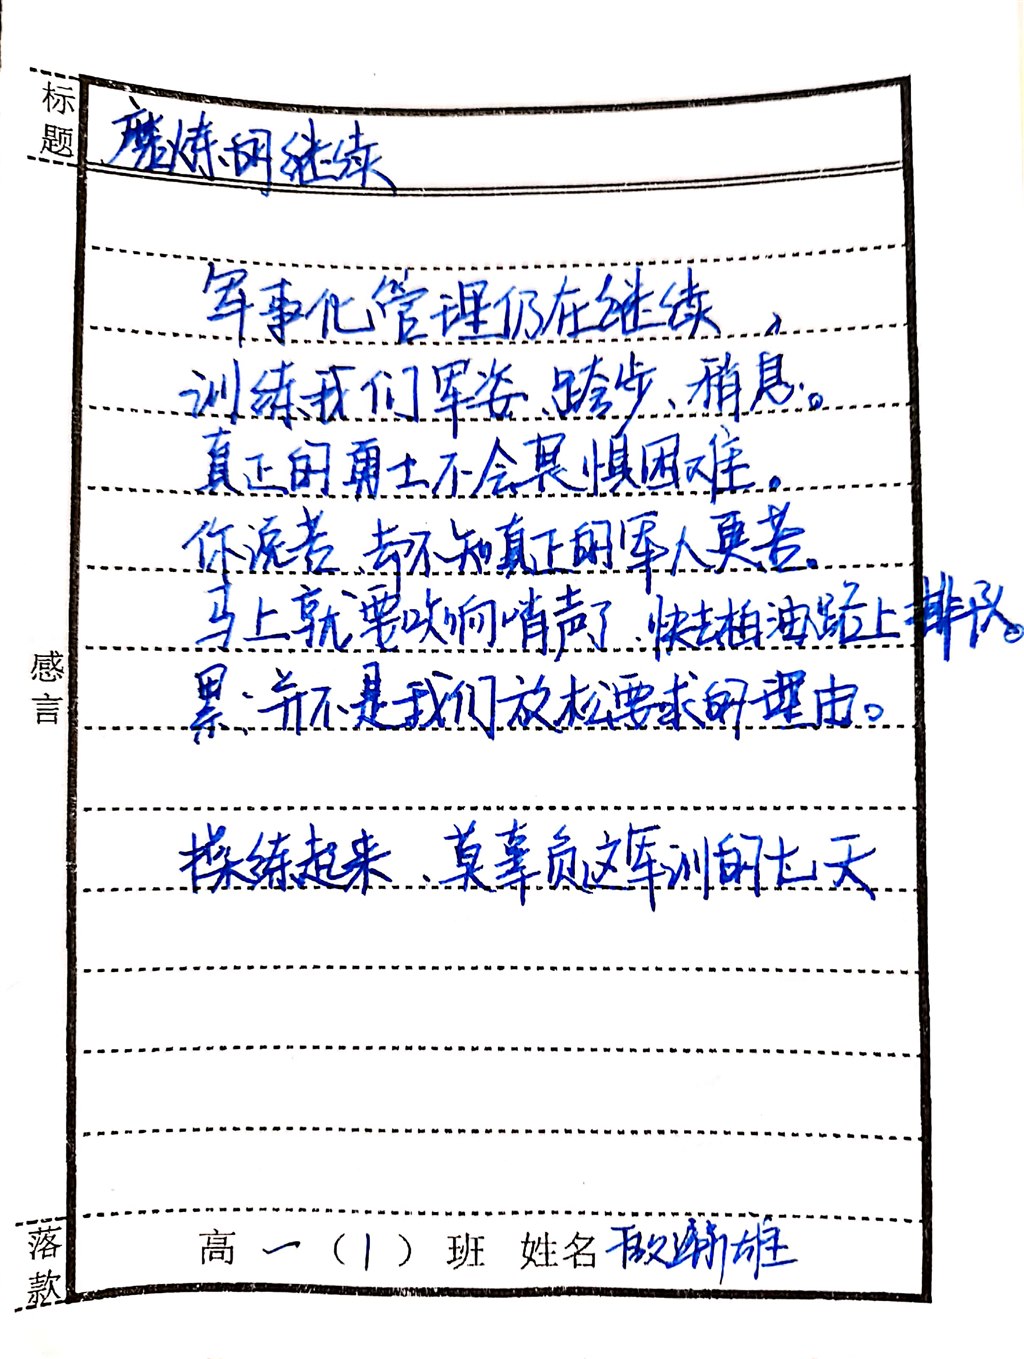 标题
磨炼的继续
军事化管理仍在继续，
训练我们军姿、跨步、稍息。
真正的勇士不会畏惧困难。
你说苦，却不知真正的军人更苦。
马上就要吹响哨声了，快去柏油路上排队。
累，并不是我们放松要求的理由。
操练起来，莫辜负这军训的七天
感言
落款
高一（1）班 姓名